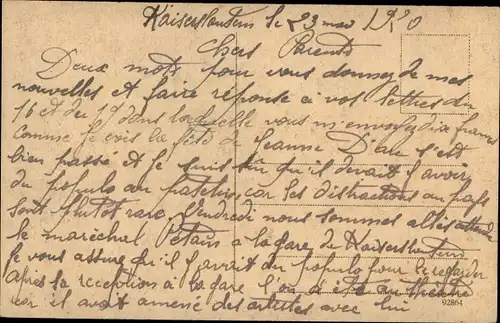 Kaiserslautern le 23 mai 1920
Chers Parents
Deux mots pour vous donner de mes
nouvelles et faire réponse à vos lettres du
16 et du 19 dans laquelle vous m'envoyez dix francs
comme je vois la fête de Jeanne D'arc s'est
bien passé et je suis sur qu'il devait y avoir
du populo au patelin car les distractions au pays
sont plutot rare. Vendredi nous sommes allés attendre
le maréchal Pétain à la gare de Kaiserslautern
je vous assure qu'il y avait du populo pour le regarder
après la reception à la gare l'on a été au théatre
car il avait amené des artistes avec lui
92864